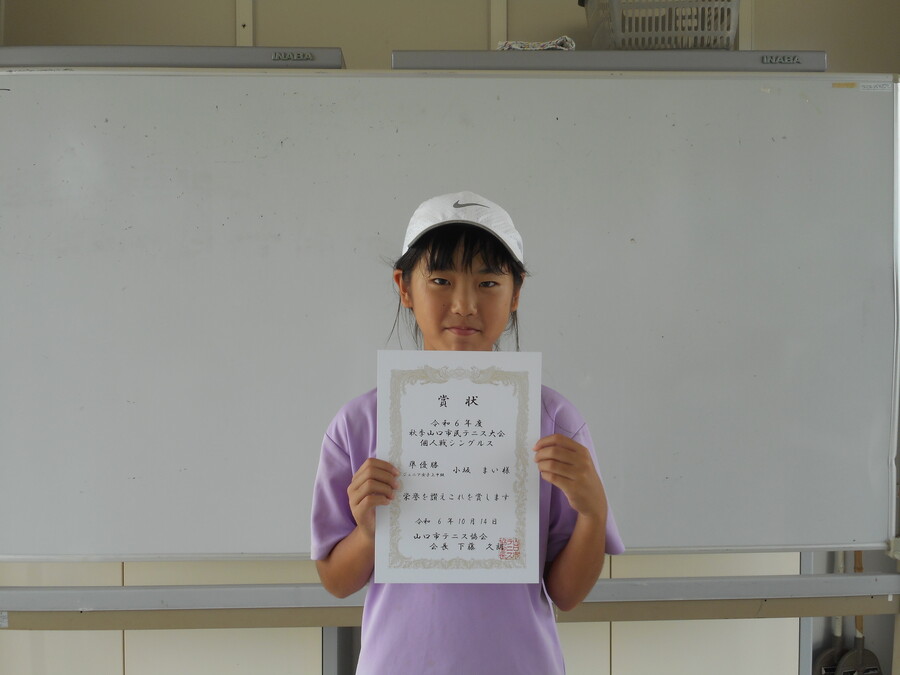 INABA
INABA
賞状
令和6年度
秋季山口市民テニス大会
個人戦シングルス
準優勝 小坂 まい 様
栄誉を讃えこれを賞します
令和 6 年 10 月 14 日
山口市テニス協会
会長 下藤 文